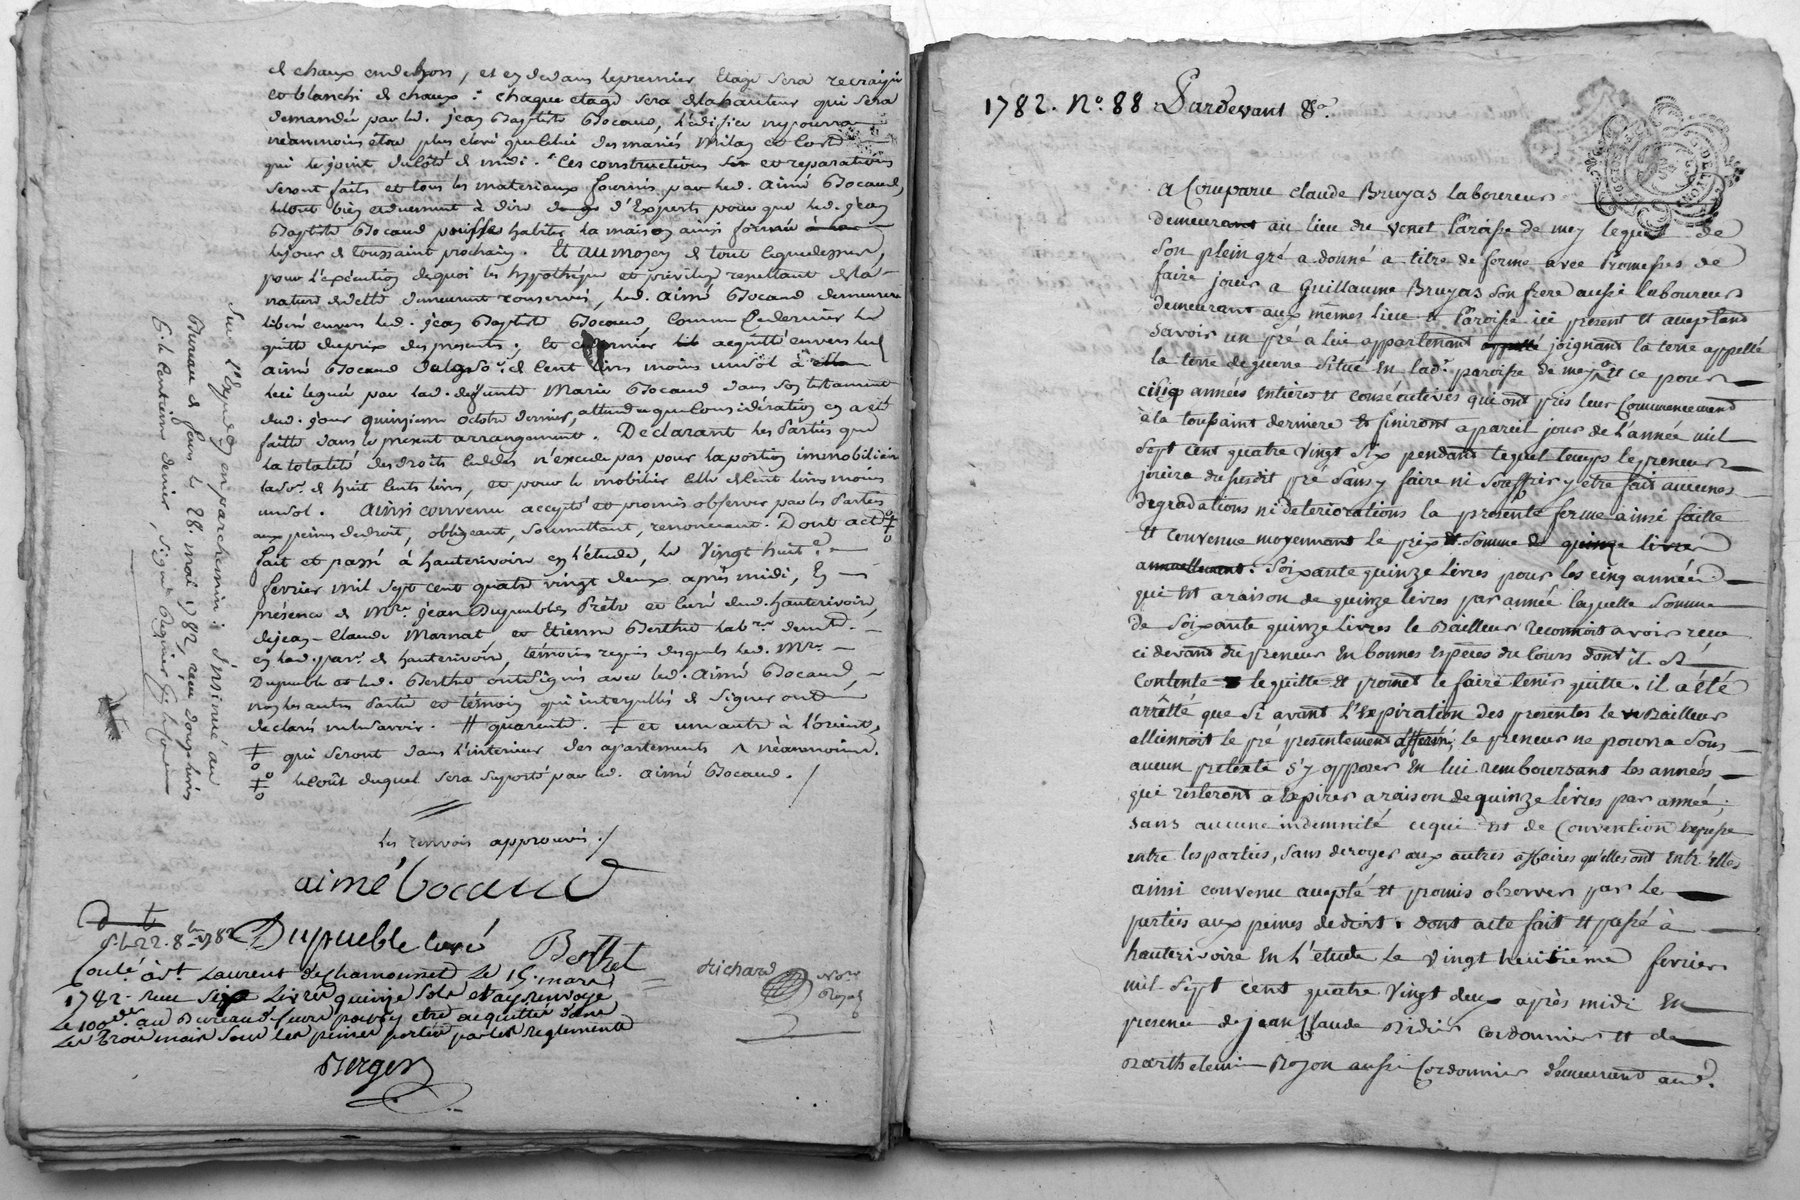 de chaux en dehors, et en dedans le premier Etage sera recraijn
et blanchi de chaux : chaque etage sera de la hauteur qui sera
demandée par led. jean Baptiste Bocaud, l'édifice ne pourra
néanmoins être plus elevé que celui des mariés Milan et
qui le joint du côté de midi. Ces constructions et reparations
seront faits et tous les materiaux fournis par led. aimé Bocaud,
le tout bien et duement à dire d'Experts pour que led. jean
Baptiste Bocaud puisse habiter la maison ainsi formée
le jour de toussaint prochain. Et au moyen de tout ce que dessus,
pour l'exécution de quoi les hypothéque et privilege resultant de la
nature de dette demeurent conservés, led. aimé Bocaud demeurera
libéré envers led. jean Baptiste Bocaud, comme ce dernier le
quitte du prix des presents. Et ce dernier acquitté envers led.
aimé Bocaud de la so.e de Cent livres moins un sol à
lui leguée par lad. defunte Marie Bocaud dans son testament
dud. jour quinzieme octobre dernier, attendu que Consideration en a été
faitte dans le present arrangement. Declarant les Parties que
la totalité des droits cédés n'excede pas pour la portion immobiliere
la so.e de huit cents livres, et pour le mobilier celle de Cent livres moins
un sol. Ainsi convenu accepté et promis observer par les Parties
aux peines de droit, obligeant, soumettant, renonceant. Dont acte
fait et passé à hauterivoire en l'étude, le Vingt huit.e
fevrier mil sept cent quatre vingt deux après midi, En
présence de M.re jean Dupuble Prêtre et Curé dud. hauterivoire,
de jean-Claude Marnat et Etienne Berthet lab.rs dem.t
en lad. par.e de hauterivoire, témoins requis desquels led. M.re
Dupuble et led. Berthet ont signés avec led. aimé Bocaud,
non les autres Partie et témoin qui interpellés de signer ont
declaré ne le savoir. # quarente. ‡ et un autre à l'orient,
qui seront dans l'interieur des apartements ^ néanmoins.
le Coût duquel sera suporté par led. aimé Bocaud. /
les renvois approuvés. /
aimé bocaud
Dupuble curé Berthet
Richard No.re Royal
le 22. 8.bre 1782
Controlé à St. Laurent de Chamousset Le 15. mars
1782. reçu six Livres quinze sols et ay renvoyé
Le 100.de au Bureau de feurs pour y etre acquitté dans
Les trois mois sous les peines portées par les reglements
Berger
Sur l'Expedition en parchemin : Insinué au
Bureau de feurs le 28. mai 1782, reçu douze livres
1782. No. 88 Pardevant &.a
A Comparu Claude Bruyas laboureur
demeurant au lieu du Venet Paroisse de mey lequel de
son plein gré a donné à titre de ferme avec Promesses de
faire jouir a Guillaume Bruyas son frere aussi laboureur
demeurant aux mêmes lieu et Paroisse ici présent et acceptand
savoir un pré à lui appartenant appellé joignant la terre appellé
la terre de guerre Situé en lad. paroisse de mey et ce pour
cinq années entières et consécutives qui ont pris leur Commencemend
à la toussaint derniere et finiront a pareil jour de l'année mil
Sept cent quatre vingt six pendant lequel temps le preneur
jouira du susdit pré sans y faire ni souffrir y être fait aucunes
degradations ni deteriorations la présente ferme ainsi faitte
et convenue moyennant le prix et somme de quinze livres
annuellement. Soixante quinze livres pour les cinq années
qui est a raison de quinze livres par année laquelle somme
de soixante quinze livres le Bailleur reconnoit avoir reçue
ci devant du preneur en bonnes especes du Cours dont il est
Contente le quitte et promet le faire tenir quitte. il a été
arretté que si avant l'Expiration des presentes le Bailleur
alliennoit le pré presentement affermé, le preneur ne pourra sous
aucun pretexte s'y opposer En lui remboursant les années
qui resteront a Expirer a raison de quinze livres par année,
sans aucune indemnité ce qui est de Convention Expresse
entre les parties, sans deroger aux autres affaires qu'elles ont entr'elles
ainsi convenu accepté et promis observer par les
parties aux peines de droit. dont acte fait et passé à
hauterivoire en l'étude Le Vingt huitieme fevrier
mil Sept cent quatre Vingt deux après midi En
presence de jean Claude Didier Cordonnier et de
Barthelemi Royon aussi Cordonnier demeurant aud.